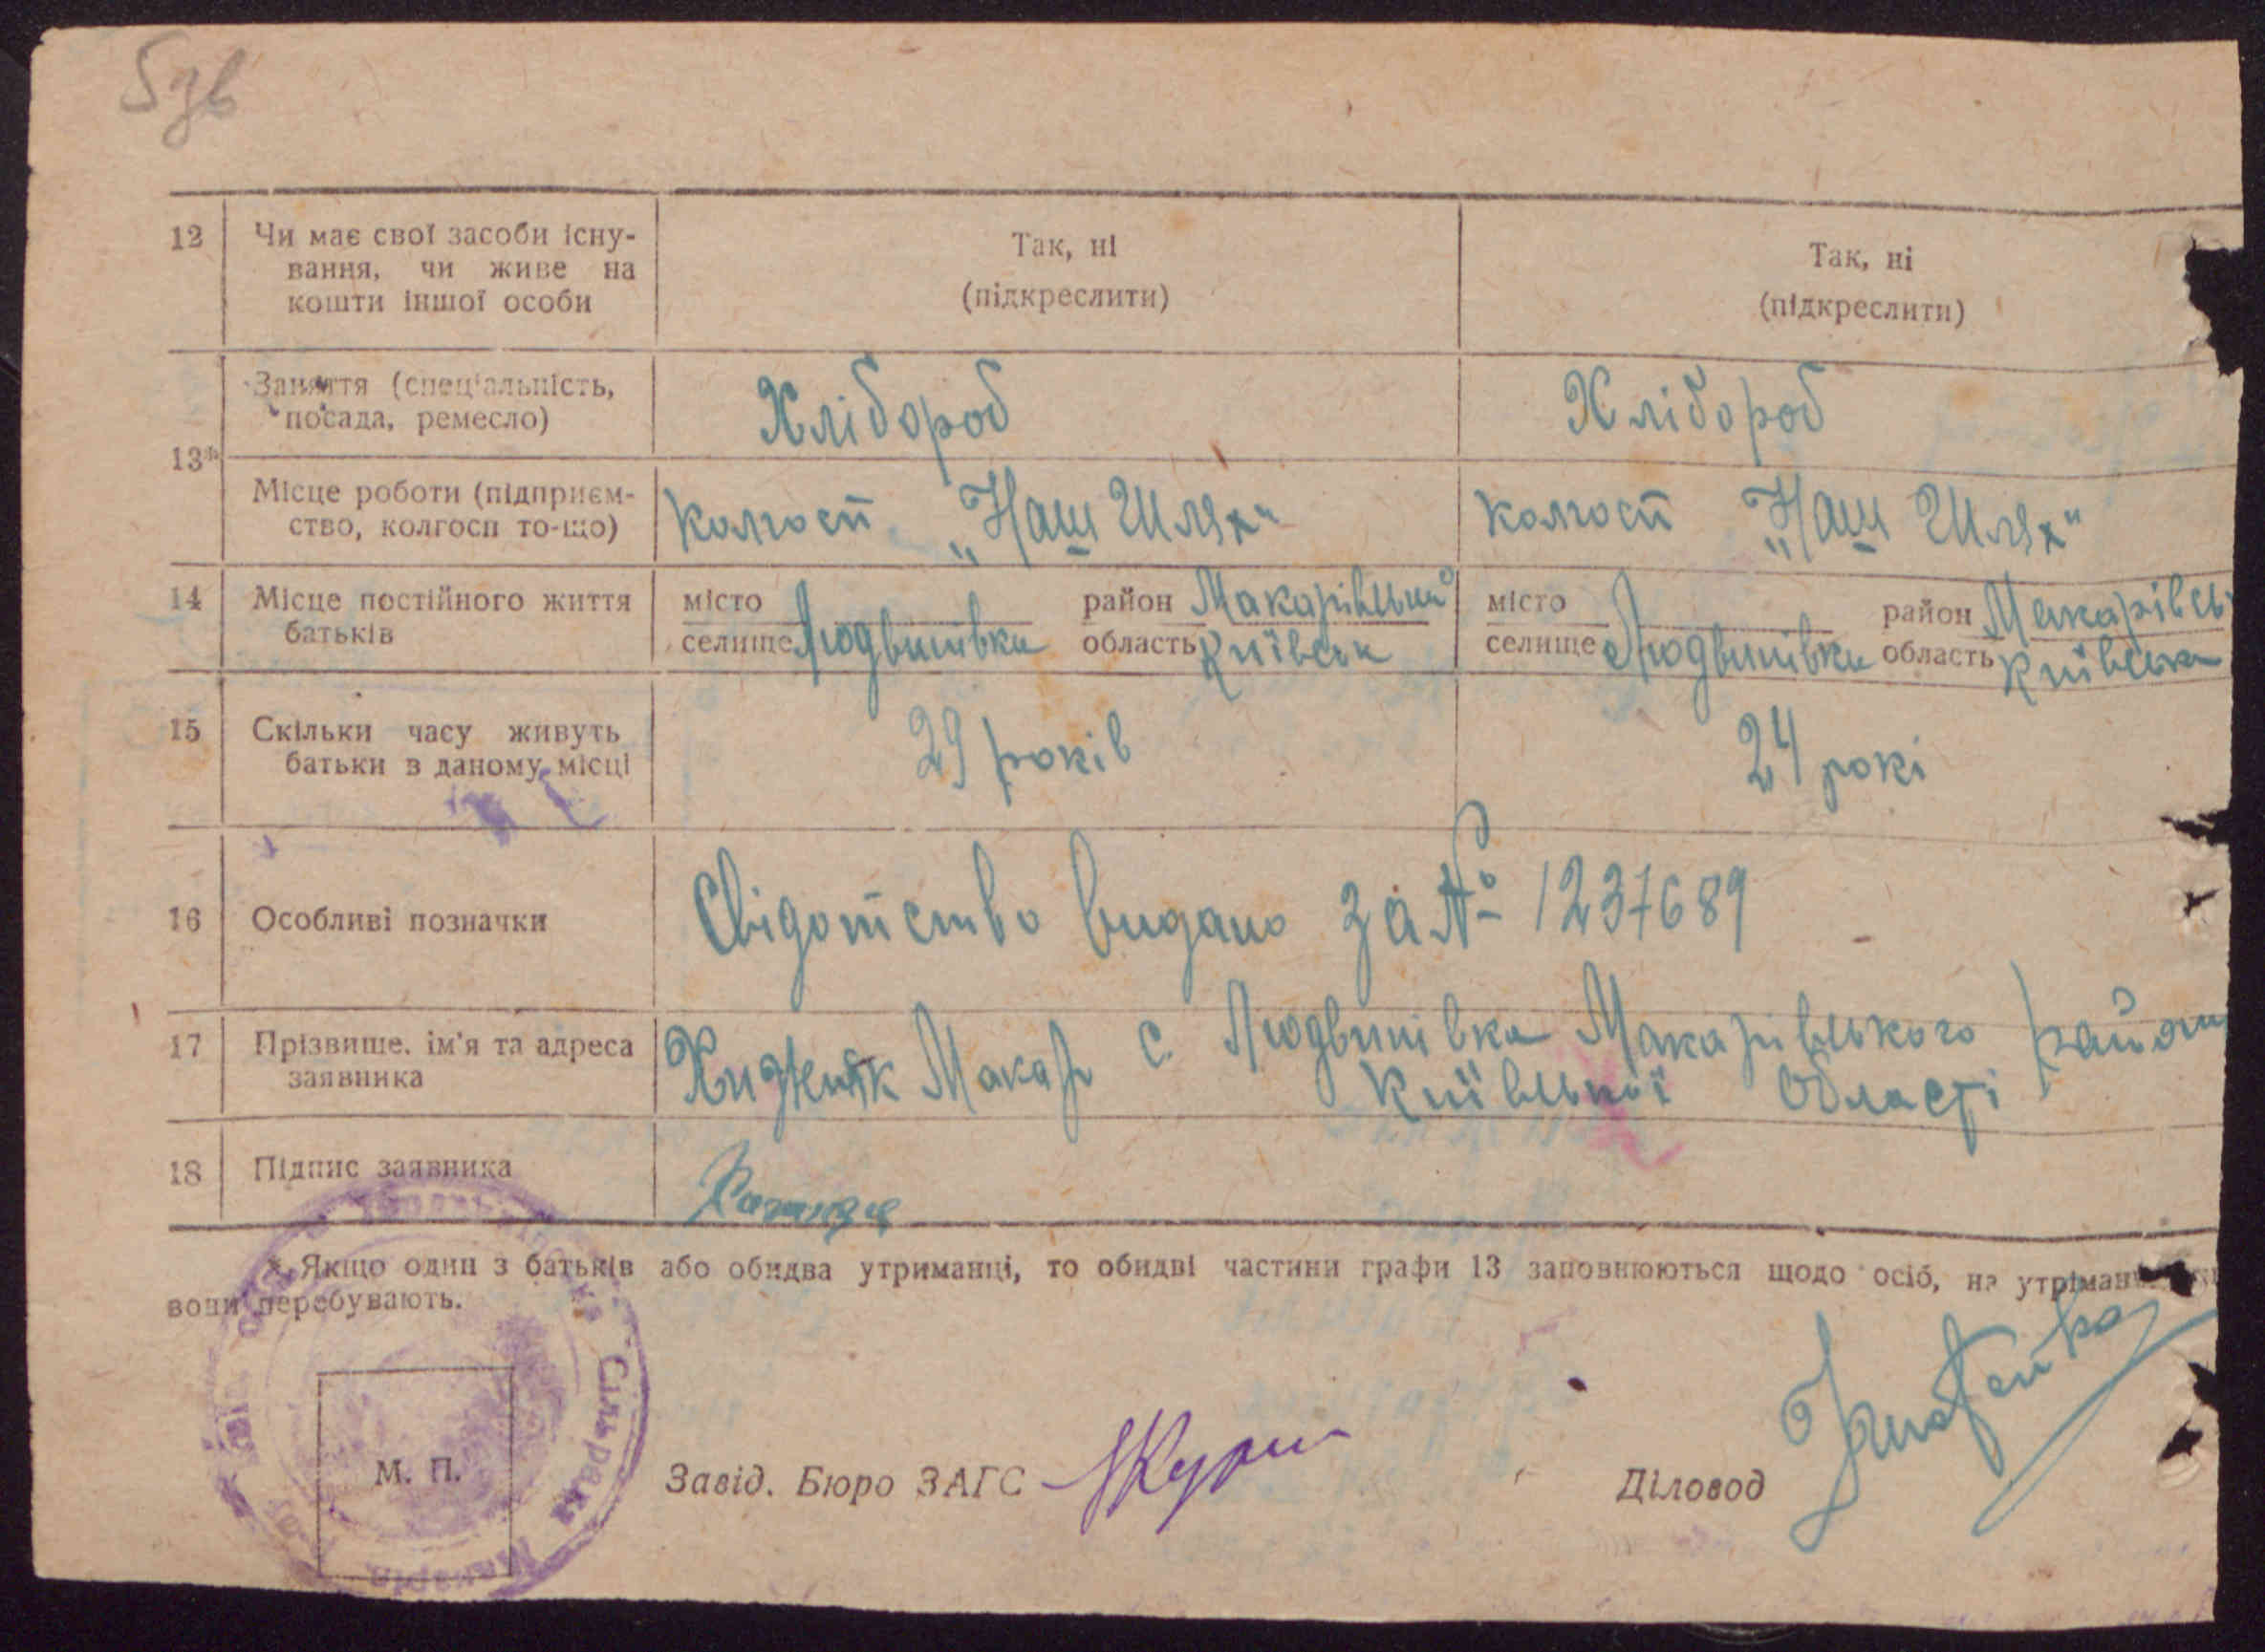 5зв
12 Чи має свої засоби існу-
вання, чи живе на
кошти іншої особи
Так, ні
(підкреслити)
Так, ні
(підкреслити)
13* Заняття (спеціальність,
посада, ремесло)
Хлібороб
Хлібороб
Місце роботи (підприєм-
ство, колгосп то-що)
колгосп „Наш Шлях"
колгосп „Наш Шлях"
14 Місце постійного життя
батьків
місто район Макарівський
селище Людвинівка область Київськ
місто район Макарівсь
селище Людвинівка область Київська
15 Скільки часу живуть
батьки в даному місці
29 років
24 рокі
16 Особливі позначки
Свідотство видано за № 1237689
17 Прізвище, ім'я та адреса
заявника
Хижняк Макар с. Людвинівка Макарівського район
Київської Області
18 Підпис заявника
* Якщо один з батьків або обидва утриманці, то обидві частини графи 13 заповнюються щодо осіб, на утриман
вони перебувають.
Сільрада
М. П.
Завід. Бюро ЗАГС
Діловод